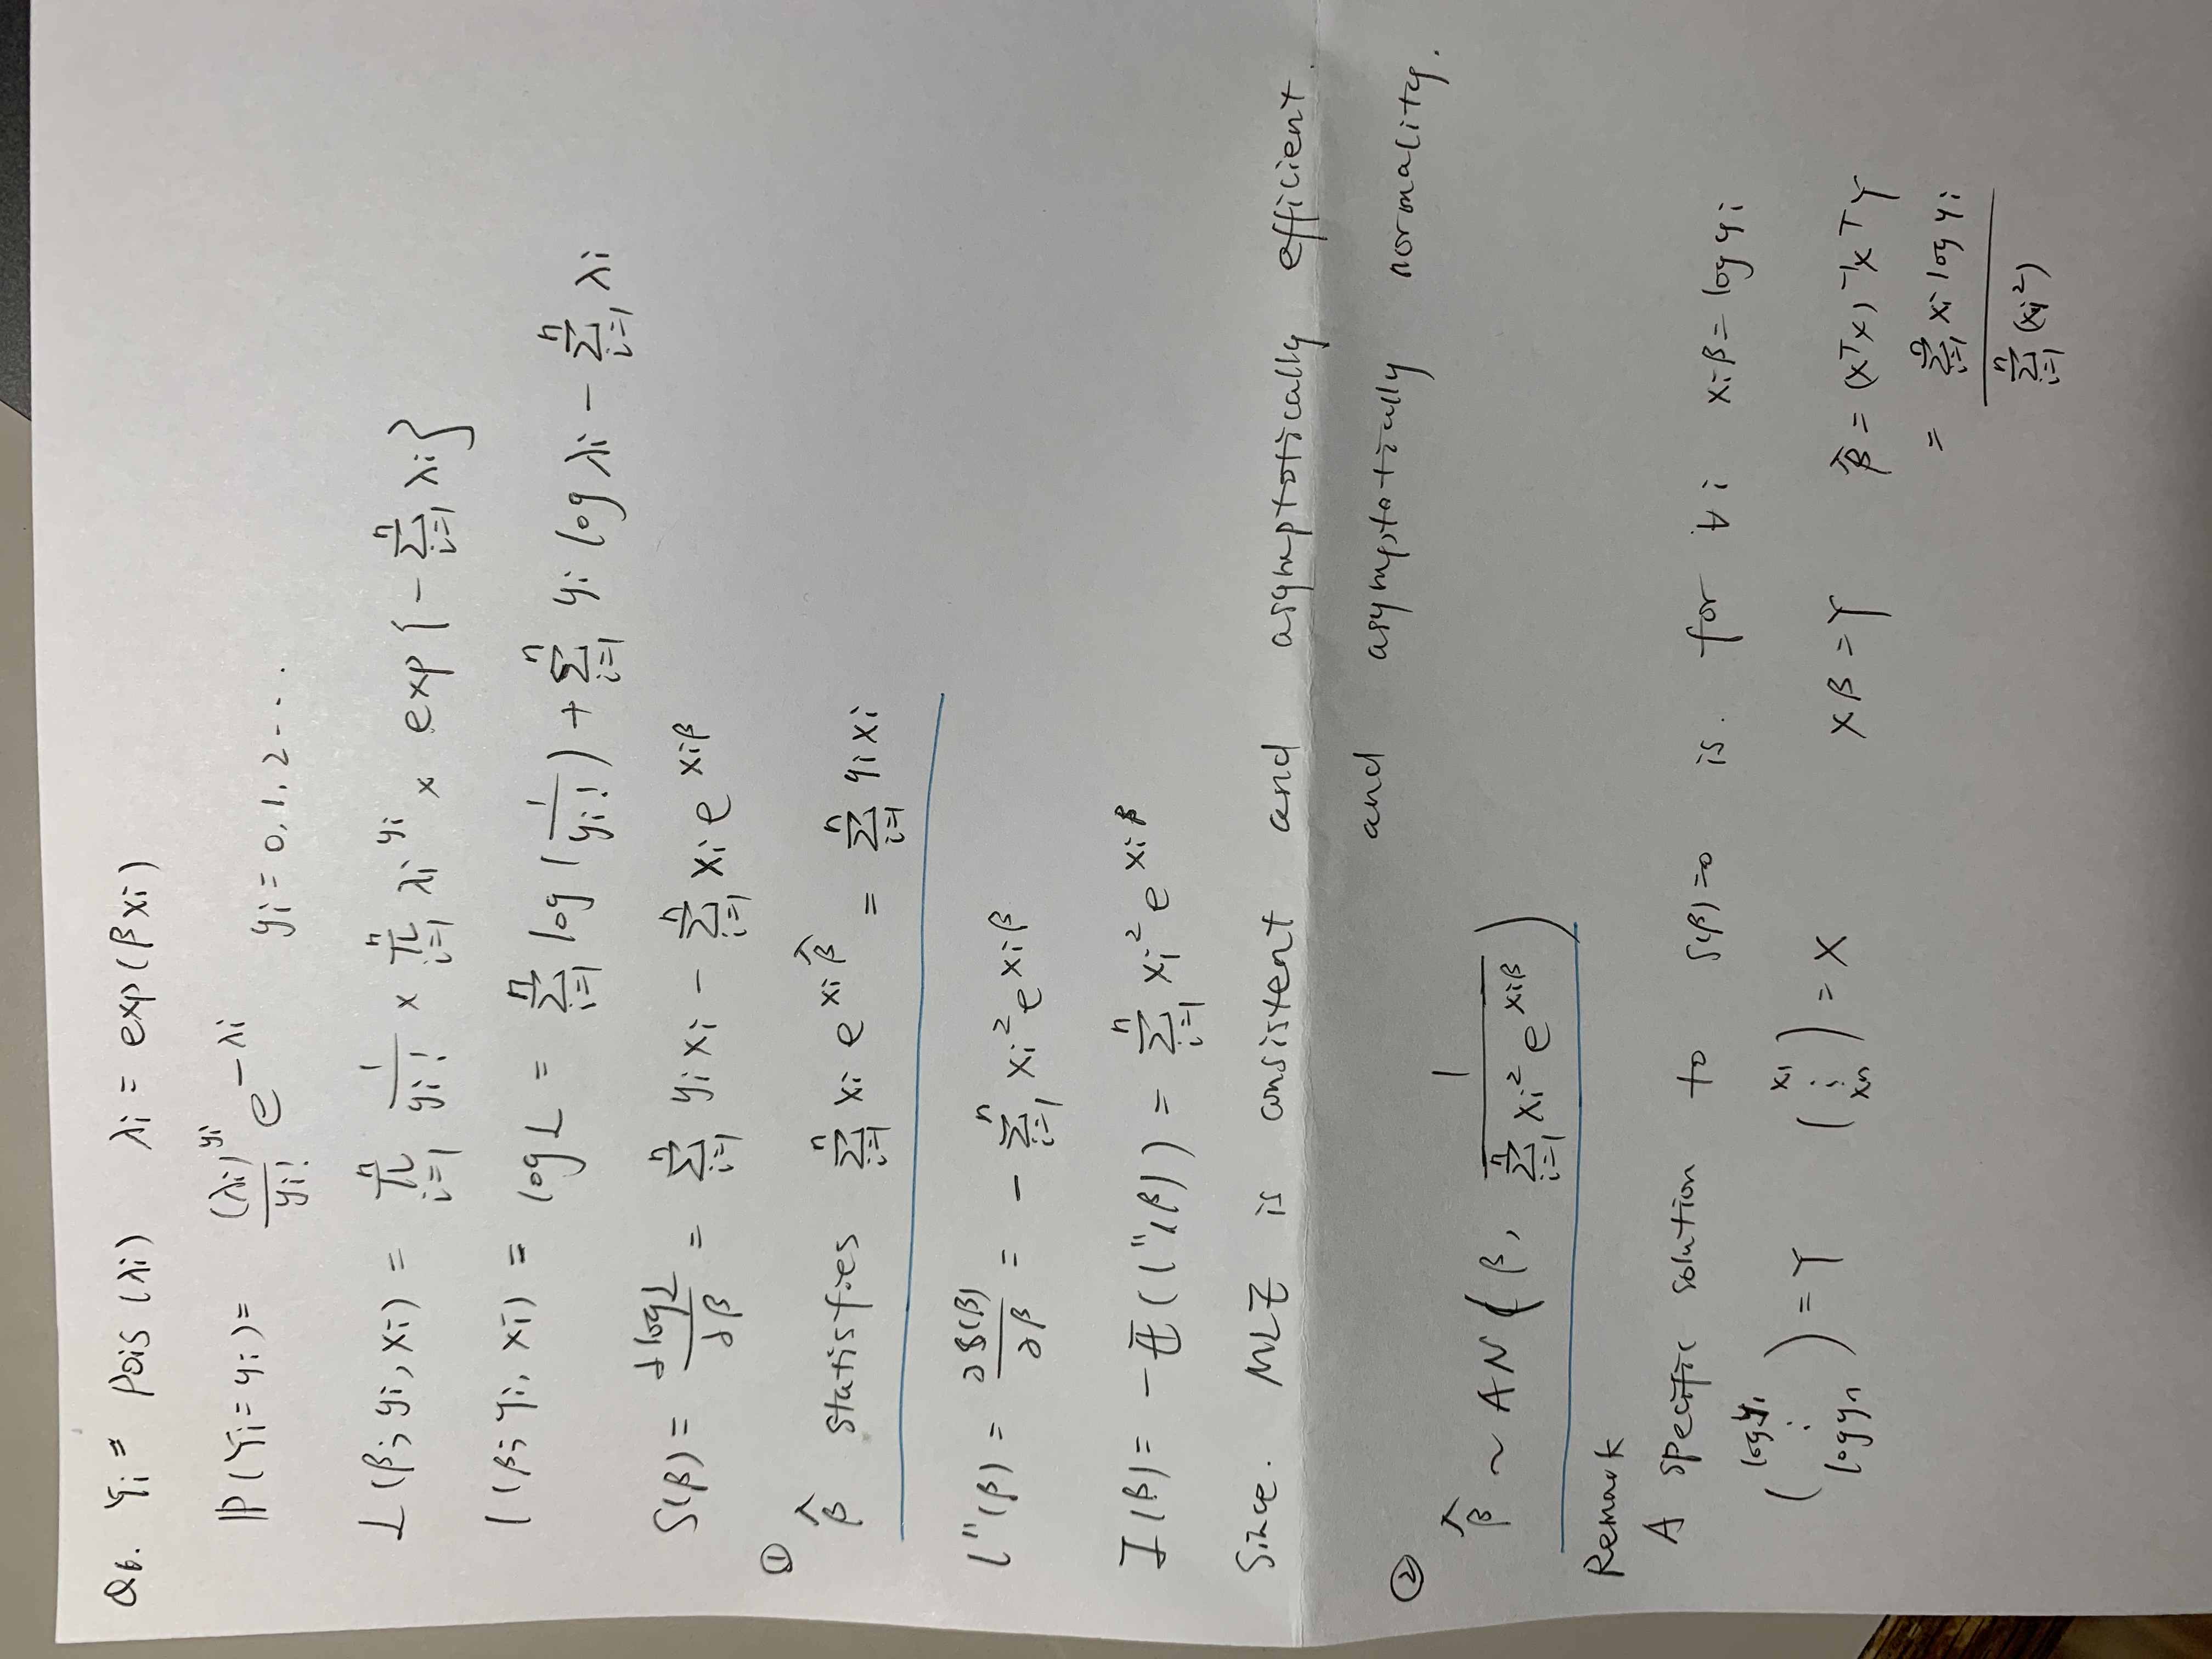 Q6. Yi = Pois(λi) λi = exp(βxi)
P(Yi=yi) = (λi)^yi / yi! e^-λi yi = 0,1,2....
L(β; yi, xi) = ∏_{i=1}^{n} 1/yi! × ∏_{i=1}^{n} λi^yi × exp{-∑_{i=1}^{n} λi}
l(β; yi, xi) = log L = ∑_{i=1}^{n} log(1/yi!) + ∑_{i=1}^{n} yi log λi - ∑_{i=1}^{n} λi
S(β) = ∂logL/∂β = ∑_{i=1}^{n} yi xi - ∑_{i=1}^{n} xi e^{xiβ}
① β̂ statisfies ∑_{i=1}^{n} xi e^{xiβ̂} = ∑_{i=1}^{n} yi xi
l''(β) = ∂S(β)/∂β = - ∑_{i=1}^{n} xi² e^{xiβ}
I(β) = -E(l''(β)) = ∑_{i=1}^{n} xi² e^{xiβ}
Since. MLE is consistent and asymptotically efficient.
and asympstotically normality.
② β̂ ~ AN(β, 1/∑_{i=1}^{n} xi² e^{xiβ})
Remark
A specific solution to S(β)=0 is. for ∀i xiβ = log yi
(log y1 ⋮ log yn) = Y (x1 ⋮ xn) = X Xβ = Y β̂ = (X^T X)^-1 X^T Y
= ∑_{i=1}^{n} xi log yi / ∑_{i=1}^{n} (xi²)